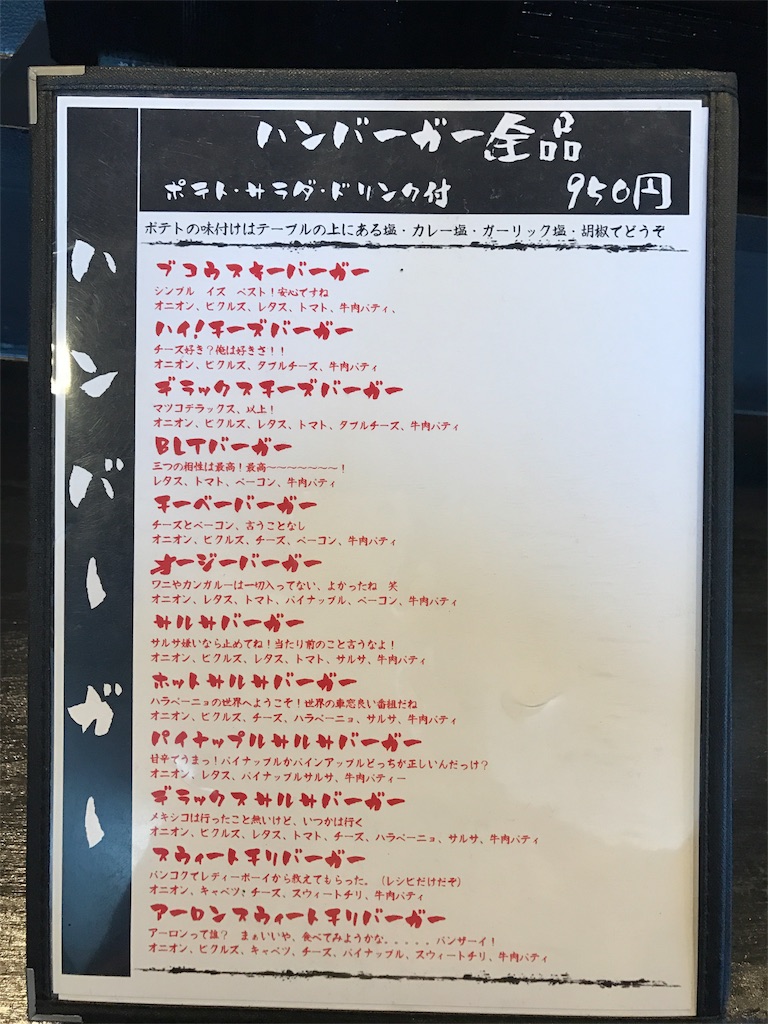 ハンバーガー全品
ポテト・サラダ・ドリンク付 950円
ポテトの味付けはテーブルの上にある塩・カレー塩・ガーリック塩・胡椒でどうぞ
ハンバーガー
ブコウスキーバーガー
シンプル イズ ベスト！安心ですね
オニオン、ピクルズ、レタス、トマト、牛肉パティ、
ハイ！チーズバーガー
チーズ好き？俺は好きさ！！
オニオン、ピクルズ、ダブルチーズ、牛肉パティ
デラックスチーズバーガー
マツコデラックス、以上！
オニオン、ピクルズ、レタス、トマト、ダブルチーズ、牛肉パティ
BLTバーガー
三つの相性は最高！最高～～～～～～～！
レタス、トマト、ベーコン、牛肉パティ
チーベーバーガー
チーズとベーコン、言うことなし
オニオン、ピクルズ、チーズ、ベーコン、牛肉パティ
オージーバーガー
ワニやカンガルーは一切入ってない、よかったね 笑
オニオン、レタス、トマト、パイナップル、ベーコン、牛肉パティ
サルサバーガー
サルサ嫌いなら止めてね！当たり前のこと言うなよ！
オニオン、ピクルズ、レタス、トマト、サルサ、牛肉パティ
ホットサルサバーガー
ハラペーニョの世界へようこそ！世界の車窓良い番組だね
オニオン、ピクルズ、チーズ、ハラペーニョ、サルサ、牛肉パティ
パイナップルサルサバーガー
甘辛でうまっ！パイナップルかパインアップルどっちか正しいんだっけ？
オニオン、レタス、パイナップルサルサ、牛肉パティー
デラックスサルサバーガー
メキシコは行ったこと無いけど、いつかは行く
オニオン、ピクルズ、レタス、トマト、チーズ、ハラペーニョ、サルサ、牛肉パティ
スウィートチリバーガー
バンコクでレディーボーイから教えてもらった。（レシピだけだぞ）
オニオン、キャベツ、チーズ、スウィートチリ、牛肉パティ
アーロンスウィートチリバーガー
アーロンって誰？ まぁいいや、食べてみようかな．．．．．バンザーイ！
オニオン、ピクルズ、キャベツ、チーズ、パイナップル、スウィートチリ、牛肉パティ